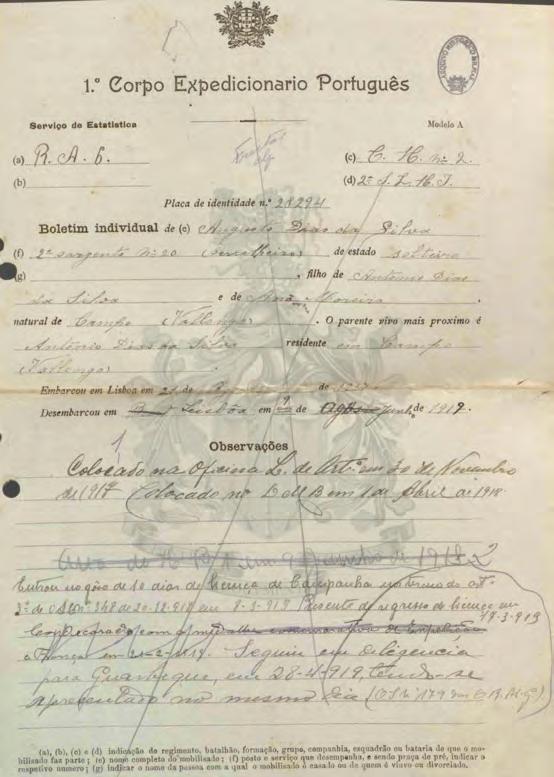 1.º Corpo Expedicionario Português
Serviço de Estatistica
Modelo A
(a) R. A. 6.
(c) C. H. nº 2.
(b)
(d) 2º S. L. H. J.
Placa de identidade n.º 28294
Boletim individual de (e) Augusto Dias da Silva
(f) 2º sargento nº 20 (serralheiro) de estado solteiro
(g) , filho de António Dias
da Silva e de Anna Moreira ,
natural de Campo (Vallongo) . O parente vivo mais proximo é
António Dias da Silva residente em Campo
(Vallongo)
Embarcou em Lisboa em de de
Desembarcou em Lisboa em 9 de Junho de 1919.
Observações
Colocado na Oficina L. de Artª em 30 de Novembro
de 1917 Colocado no em 1 de Abril de 1918.
Entrou no gôso de 10 dias de licença de Campanha nos termos do artº
1º de 348 de 20-12-918 em 8-3-919 Presente de regresso de licença em
17-3-919
Condecorado com a medalha comemorativa da Expedição
a França em Seguiu em diligencia
para em 28-4-919, tendo-se
apresentado no mesmo dia (O.S. nº 179
(a), (b), (c) e (d) indicação do regimento, batalhão, formação, grupo, companhia, esquadrão ou bataria de que o mo-
bilisado faz parte; (e) nome completo do mobilisado; (f) posto e serviço que desempenha, e sendo praça de pré, indicar o
respetivo numero; (g) indicar o nome da pessoa com a qual o mobilisado é casado ou de quem é viuvo ou divorciado.